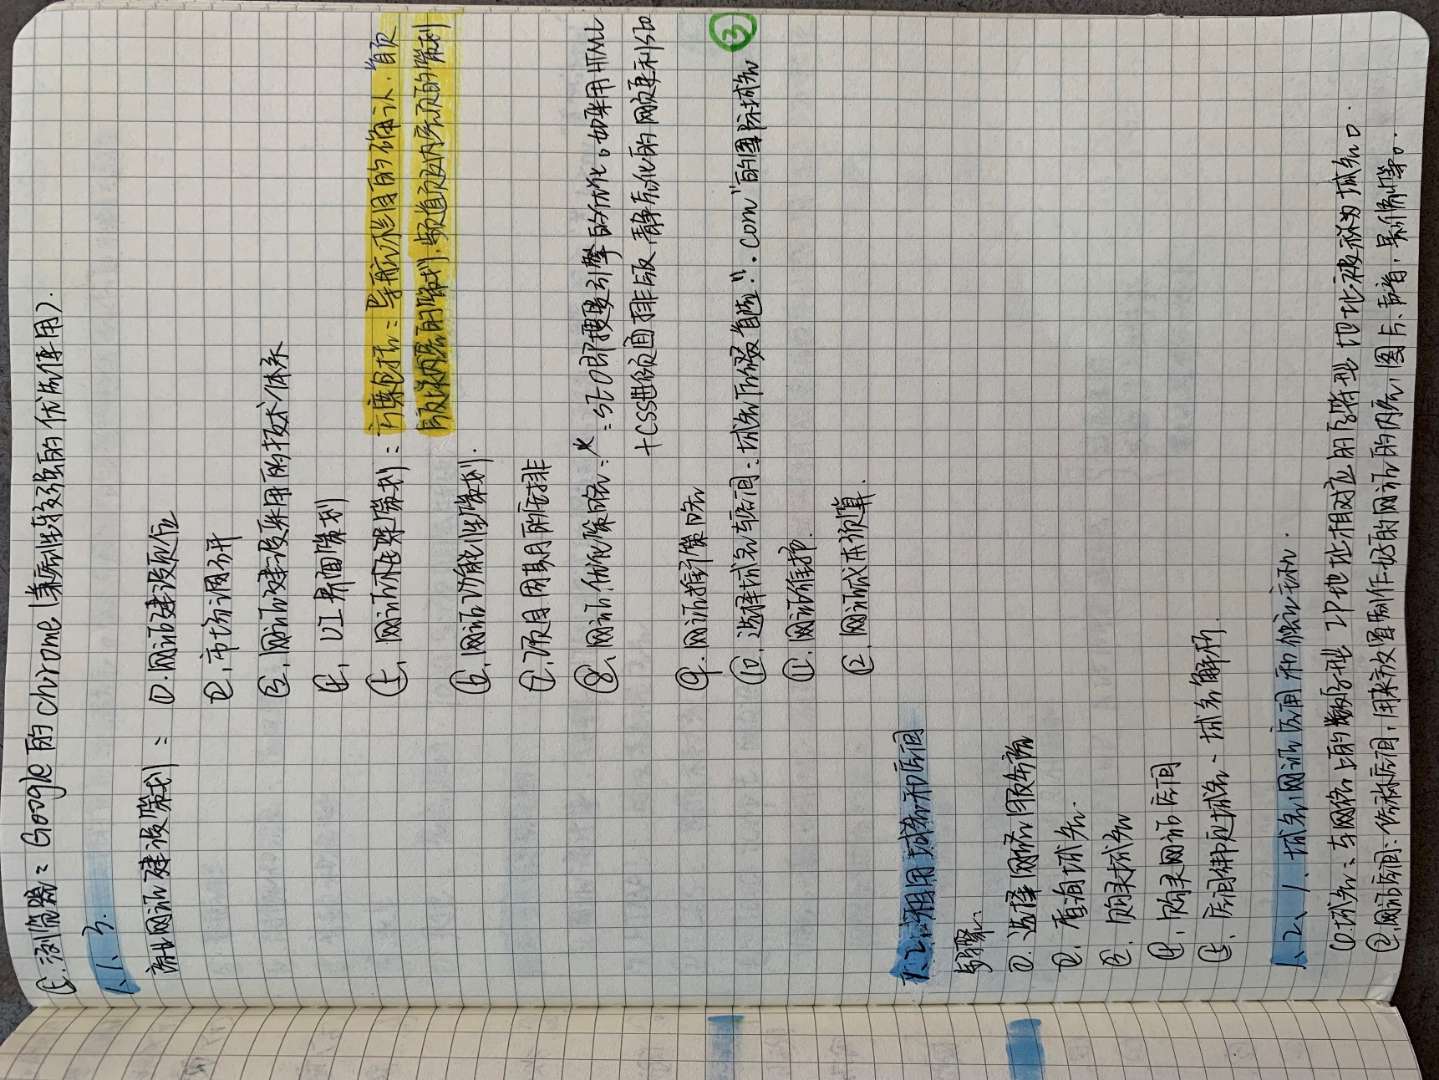 ⑤.浏览器：Google的chrome(兼容性较强的优先使用).
1.1.3.
商业网站建设策划：①.网站建设定位
②.市场调研
③.网站建设采用的技术体系
④.UI界面策划
⑤.网站栏目策划：方案包括：导航栏目的确认.首页
及栏目内容的策划.频道页及内容页的策划
⑥.网站功能性策划.
⑦.项目周期的安排
⑧.网站优化策略：*：SEO即搜索引擎的优化。如采用HTML
+CSS进行页面排版.静态化的网页更利SEO
⑨.网站推广策略
⑩.选择域名与空间：域名下后缀首选:".com"的国际域名 ③
⑪.网站维护.
⑫.网站成本预算.
1.2:租用域名和空间
步骤:
①.选择网络服务商
②.查询域名.
③.购买域名
④.购买网站空间
⑤.空间绑定域名、域名解析.
1.2.1.域名网站空间和独立IP.
①.域名：与网络上的数字型IP地址相对应的字符型地址被称为域名。
②.网站空间：俗称空间，用来放置制作好的网站的内容，图片、声音，影像等。